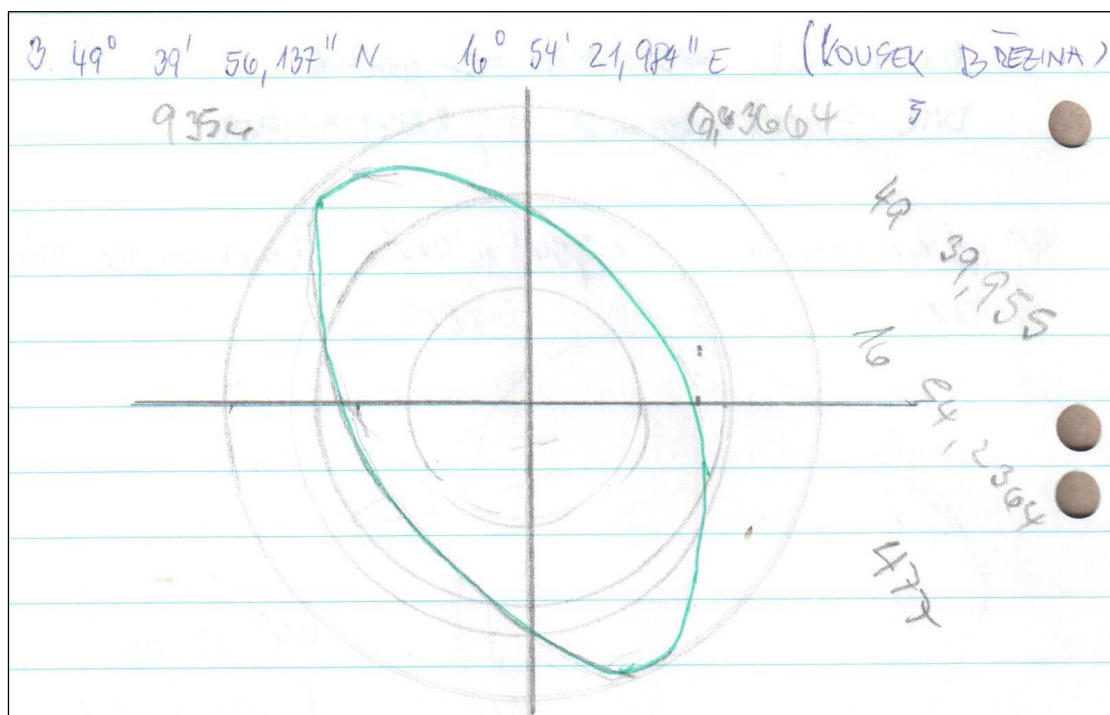 3. 49° 39' 56,137" N 16° 54' 21,984" E (KOUSEK BŘEZINA)
9354 0,43664 5
49 39,955
16 54,2364
477